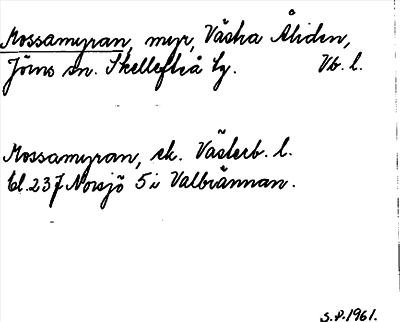 Mossamyran, myr, Västra Åliden,
Jörns sn. Skellefteå tg. Vb. l.
Mossamyran, ek. Västerb. l.
bl. 237 Norsjö 5 i Valbrännan.
S.P. 1961.